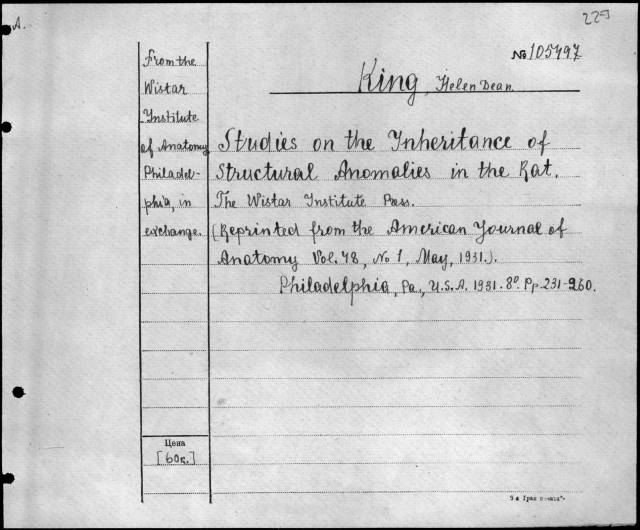 A.
229
№ 105797
King, Helen Dean.
From the
Wistar
Institute
of Anatomy
Philadel-
phia, in
exchange.
Studies on the Inheritance of
Structural Anomalies in the Rat.
The Wistar Institute Press.
(Reprinted from the American Journal of
Anatomy Vol. 48, № 1, May, 1931.).
Philadelphia, Pa., U.S.A. 1931. 8º. Pp. 231-260.
Цена
[60к.]